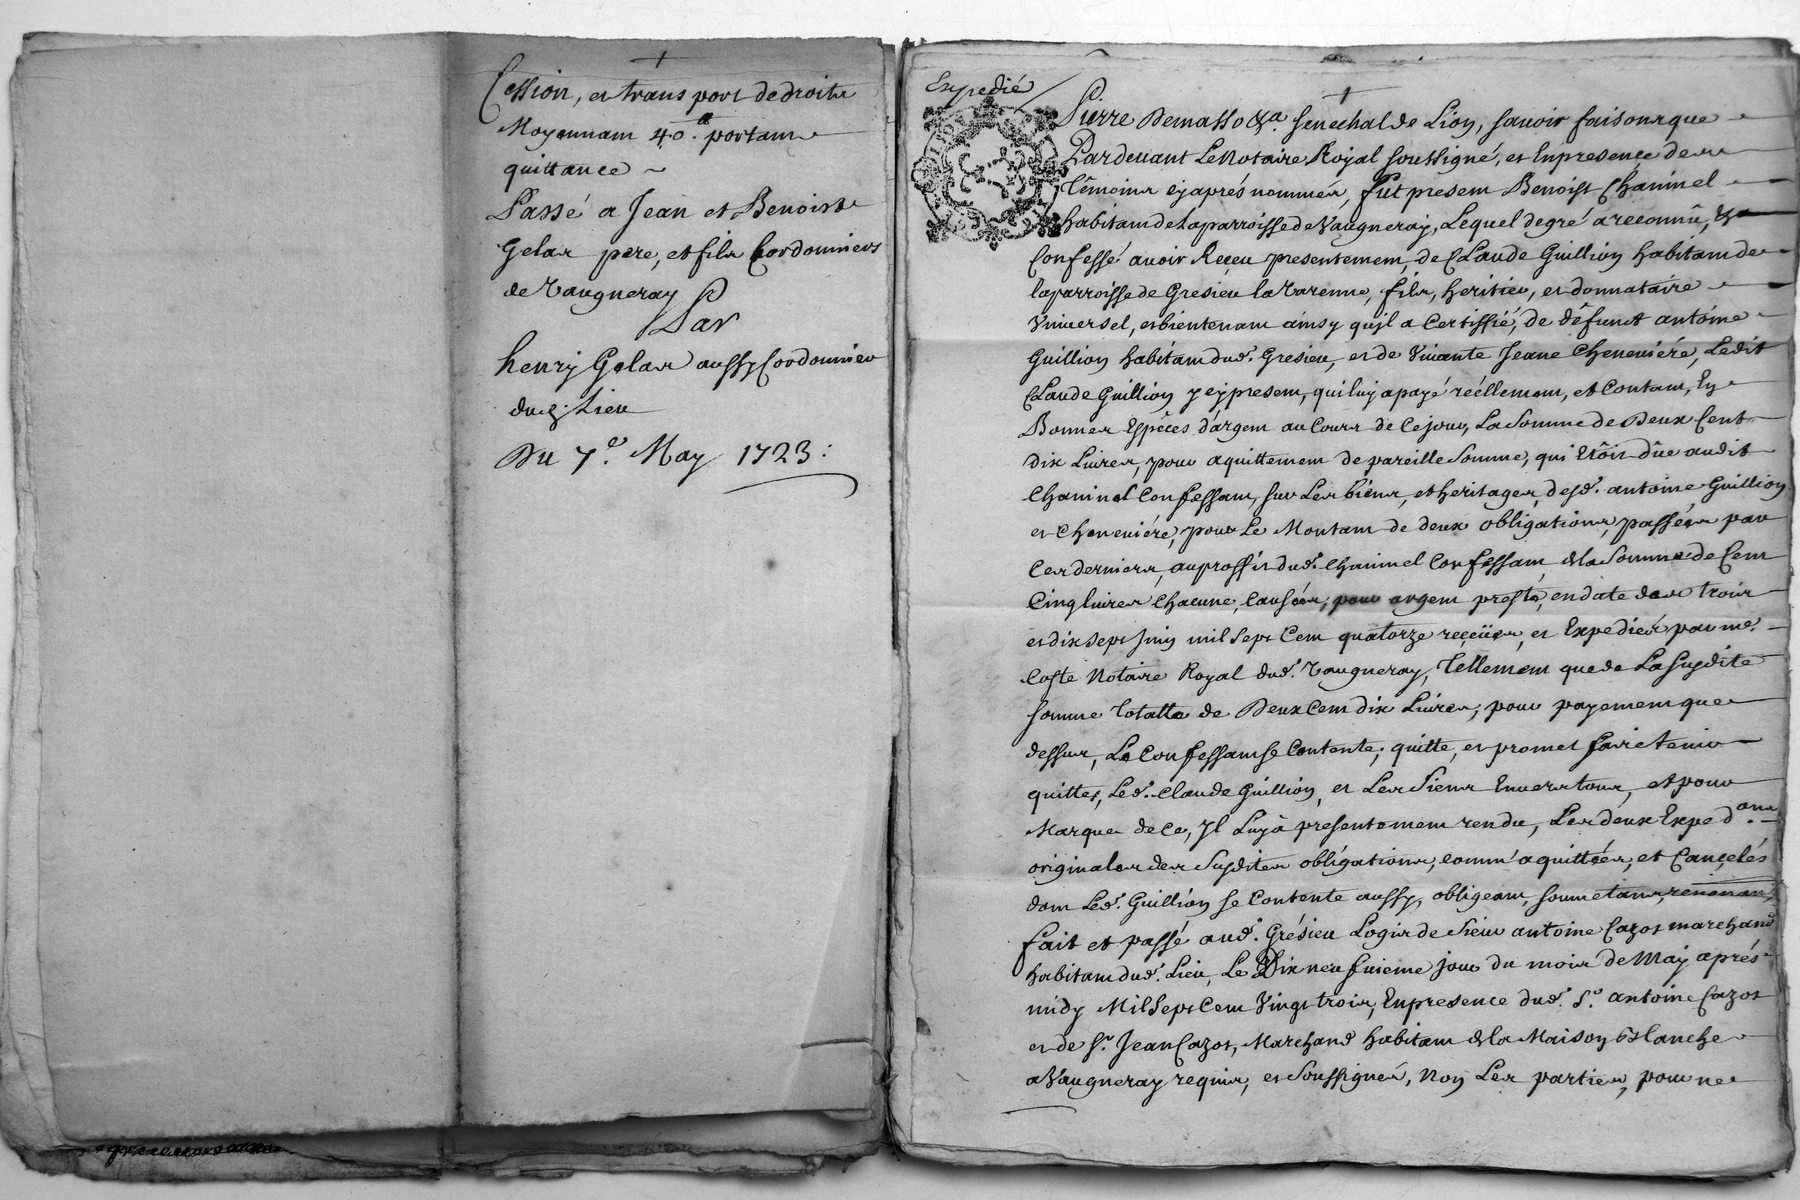 Cession, et transport de droits
Moyennant 40.tt portant
quittance ~
Passé a Jean et Benoist
Gelas pere, et fils Cordonniers
de Vaugneray
Par
henry Gelas aussy Cordonnier
dud. Lieu
Du 7.e May 1723:
Expedié
Pierre Demasso &a. senechal de Lion, savoir faisons que
Pardevant Le Notaire Royal soussigné, et En presence des
têmoins cy aprés nommés, fut present Benoist Chaninel
habitant de La parroisse de Vaugneray, Lequel de gré a reconnû, &
Confessé avoir Reçeu presentement, de Claude Guillion habitant de
la parroisse de Gresieu la Varenne, fils, heritier, et donnataire
Vniversel, et bientenant ainsy qu'il a Certiffié, de défunct antoine
Guillion habitant dud. Gresieu, et de vivante Jeane Cheneviére, Ledit
Claude Guillion y cy present, qui luy a payé réellement, et Contant, En
Bonnes Espêces d'argent au Cours de Ce jour, La Somme de Deux Cent
dix Livres, pour aquittement de pareille Somme, qui Etôit dûe audit
Chaninel Confessant, sur Les biens, et heritages, desd. antoine Guillion
et Cheneviére, pour Le Montant de deux obligations, passées par
Ces derniers, au proffit dud. Chaninel Confessant, de la Somme de Cent
Cinq livres Chacune, Causées, pour argent presté, en date des trois
et dix sept Juin mil sept Cent quatorze reçeües, et Expediés par me.
Coste Notaire Royal dud. Vaugneray, tellement que de La Susdite
somme totalle de Deux Cent dix Livres, pour payement que
dessus, Le Confessant se Contente, quitte, et promet faire tenir
quittes, Led. Claude Guillion, et Les Siens Envers tous, et pour
Marque de Ce, Il Luy à presentement rendu, Les deux Exped.ons
originales des Susdites obligations, comm' aquittées, et Cançelés
dont Led. Guillion se Contente aussy, obligeant, soumetant, renonçant,
fait et passé aud. Grésieu Logis de Sieur antoine Cazot marchand
habitant dud. Lieu, Le Dix neufvieme jour du mois de May aprés
midy Mil Sept Cent Vingt trois, En presence dud. S.r antoine Cazot
et de S.r Jean Cazot, Marchand habitant de la Maison Blanche
a Vaugneray requis, et Soussignés, Non Les parties, pour ne